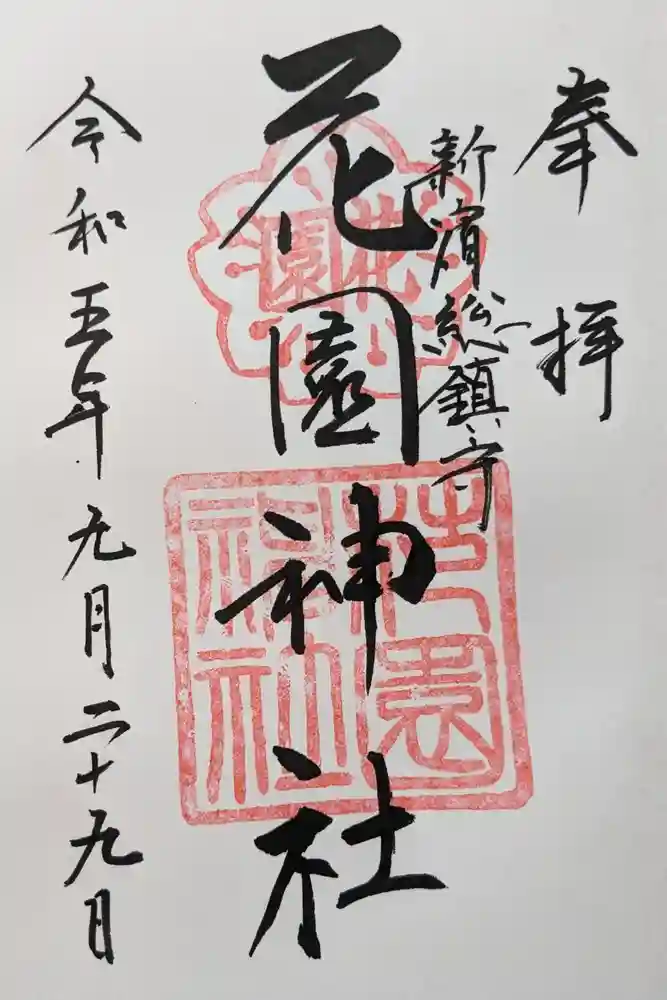 奉拝
新宿総鎮守
花園神社
花園
花園神社
令和五年九月二十九日